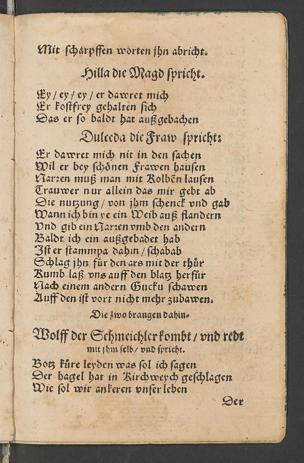 Mit scharpffen worten jhn abricht.
Hilla die Magd spricht.
Ey / ey / ey / er dawret mich
Er kostfrey gehalten sich
Das er so baldt hat außgebachen
Dulceda die Fraw spricht:
Er dawret mich nit in den sachen
Wil er bey schönen Frawen hausen
Narren muß man mit Kolbẽn lausen
Trauwer nur allein das mir geht ab
Die nutzung / von jhm schenck vnd gab
Wann ich bin ye ein Weib auß flandern
Vnd gib ein Narren vmb den andern
Baldt ich ein außgebadet hab
Ist er stammpa dahin / schabab
Schlag jhn für den ars mit der thür
Kumb laß vns auff den blatz herfür
Nach einem andern Gucku schawen
Auff den ist vort nicht mehr zubawen.
Die zwo brangen dahin.
Wolff der Schmeichler kombt / vnd redt
mit jhm selb / vnd spricht.
Botz kůre leyden was sol ich sagen
Der hagel hat in Kirchweych geschlagen
Wie sol wir ankeren vnser leben
Der